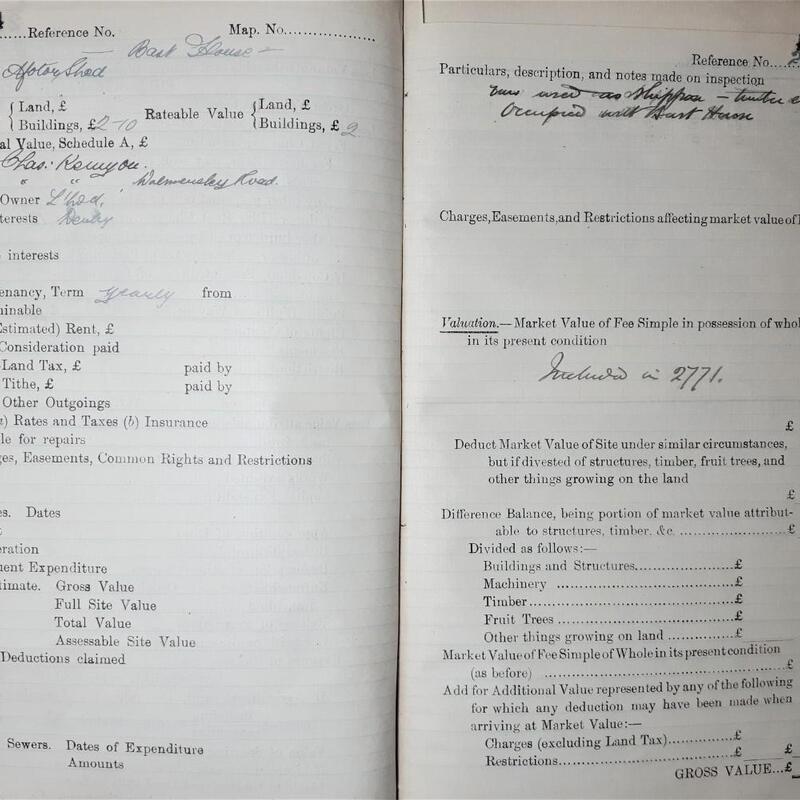 4
......Reference No. Map. No....................
— Bast House —
Motor Shed
Land, £
Buildings, £2-10
Rateable Value
Land, £
Buildings, £ 2
al Value, Schedule A, £
Chas: Kenyon.
" " , Walmersley Road.
Owner L'hod,
terests
interests
enancy, Term yearly from
ninable
Estimated) Rent, £
Consideration paid
Land Tax, £ paid by
Tithe, £ paid by
Other Outgoings
) Rates and Taxes (b) Insurance
le for repairs
ges, Easements, Common Rights and Restrictions
es. Dates
eration
uent Expenditure
timate. Gross Value
Full Site Value
Total Value
Assessable Site Value
Deductions claimed
Sewers. Dates of Expenditure
Amounts
Reference No....2
Particulars, description, and notes made on inspection
now used as shippon – timber
Occupied with Bast House
Charges, Easements, and Restrictions affecting market value of
Valuation.—Market Value of Fee Simple in possession of whole
in its present condition
Included in 2771.
£
Deduct Market Value of Site under similar circumstances,
but if divested of structures, timber, fruit trees, and
other things growing on the land
£
Difference Balance, being portion of market value attribut-
able to structures, timber, &c. ........................£
Divided as follows:—
Buildings and Structures....................£
Machinery ....................................£
Timber..........................................£
Fruit Trees ....................................£
Other things growing on land ..............£
Market Value of Fee Simple of Whole in its present condition
(as before) ..................................................£
Add for Additional Value represented by any of the following
for which any deduction may have been made when
arriving at Market Value:—
Charges (excluding Land Tax)..............£
Restrictions....................................£ £
GROSS VALUE...£